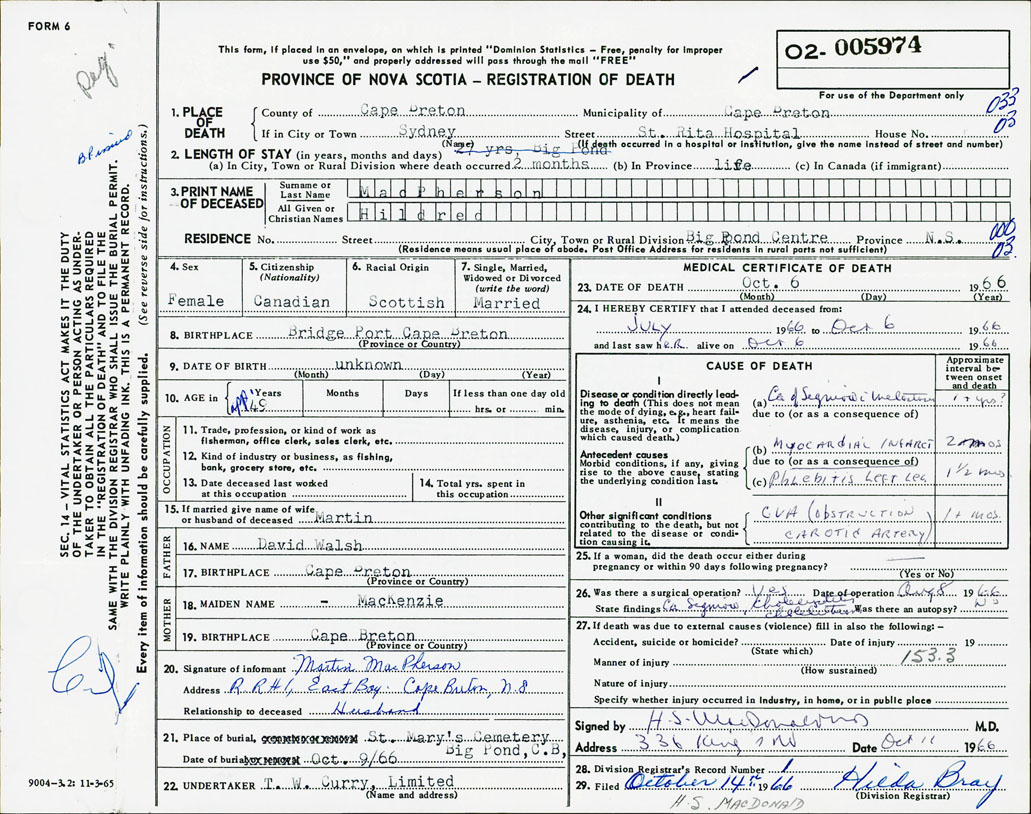 FORM 6
Reg.
This form, if placed in an envelope, on which is printed "Dominion Statistics – Free, penalty for improper
use $50," and properly addressed will pass through the mail "FREE"
PROVINCE OF NOVA SCOTIA – REGISTRATION OF DEATH
02- 005974
For use of the Department only
033
03
1. PLACE OF DEATH
County of Cape Breton Municipality of Cape Breton
If in City or Town Sydney Street St. Rita Hospital House No.
(Name) (If death occurred in a hospital or institution, give the name instead of street and number)
2. LENGTH OF STAY (in years, months and days) 27 yrs, Big Pond
(a) In City, Town or Rural Division where death occurred 2 months (b) In Province life (c) In Canada (if immigrant)
3. PRINT NAME OF DECEASED
Surname or Last Name MacPherson
All Given or Christian Names Hildred
RESIDENCE No. Street City, Town or Rural Division Big Pond Centre Province N.S.
(Residence means usual place of abode. Post Office Address for residents in rural parts not sufficient)
000
03
4. Sex Female
5. Citizenship (Nationality) Canadian
6. Racial Origin Scottish
7. Single, Married, Widowed or Divorced (write the word) Married
8. BIRTHPLACE Bridge Port Cape Breton
(Province or Country)
9. DATE OF BIRTH unknown
(Month) (Day) (Year)
10. AGE in Years 49 Months Days If less than one day old
hrs. or min.
OCCUPATION
11. Trade, profession, or kind of work as
fisherman, office clerk, sales clerk, etc.
12. Kind of industry or business, as fishing,
bank, grocery store, etc.
13. Date deceased last worked
at this occupation
14. Total yrs. spent in
this occupation
15. If married give name of wife
or husband of deceased Martin
FATHER
16. NAME David Walsh
17. BIRTHPLACE Cape Breton
(Province or Country)
MOTHER
18. MAIDEN NAME - MacKenzie
19. BIRTHPLACE Cape Breton
(Province or Country)
20. Signature of informant Martin MacPherson
Address R R #1, East Bay Cape Breton, N S
Relationship to deceased Husband
21. Place of burial, St. Mary's Cemetery
Big Pond, C.B,
Date of burial Oct. 9/66
22. UNDERTAKER T. W. Curry, Limited
(Name and address)
MEDICAL CERTIFICATE OF DEATH
23. DATE OF DEATH Oct. 6 1966
(Month) (Day) (Year)
24. I HEREBY CERTIFY that I attended deceased from:
JULY 1966 to Oct 6 1966
and last saw hER alive on Oct 6 1966
CAUSE OF DEATH
Approximate interval between onset and death
I
Disease or condition directly leading to death (This does not mean
the mode of dying, e.g., heart failure, asthenia, etc. It means the
disease, injury, or complication
which caused death.)
(a) Ca of Sigmoid 1+ yrs?
due to (or as a consequence of)
Antecedent causes
Morbid conditions, if any, giving
rise to the above cause, stating
the underlying condition last.
(b) MYOCARDIAL INFARCT 2 mos
due to (or as a consequence of)
(c) PHLEBITIS LEFT LEG 1 1/2 mos
II
Other significant conditions
contributing to the death, but not
related to the disease or condition causing it.
CVA (OBSTRUCTION
CAROTIC ARTERY) 1+ mos.
25. If a woman, did the death occur either during
pregnancy or within 90 days following pregnancy?
(Yes or No)
26. Was there a surgical operation? Yes Date of operation Aug 8 1966
State findings Ca Sigmoid, Was there an autopsy? No
27. If death was due to external causes (violence) fill in also the following: –
Accident, suicide or homicide? Date of injury 19
(State which)
Manner of injury 153.3
(How sustained)
Nature of injury
Specify whether injury occurred in industry, in home, or in public place
Signed by H.S. MacDonald M.D.
Address 336 King's Rd Date Oct 11 1966
28. Division Registrar's Record Number 1
29. Filed October 14th 1966 Hilda Bray
(Division Registrar)
H. S. MACDONALD
SEC. 14 – VITAL STATISTICS ACT MAKES IT THE DUTY
OF THE UNDERTAKER OR PERSON ACTING AS UNDER-
TAKER TO OBTAIN ALL THE PARTICULARS REQUIRED
IN THE "REGISTRATION OF DEATH" AND TO FILE THE
SAME WITH THE DIVISION REGISTRAR WHO SHALL ISSUE THE BURIAL PERMIT.
WRITE PLAINLY WITH UNFADING INK. THIS IS A PERMANENT RECORD.
Every item of information should be carefully supplied. (See reverse side for instructions.)
9004–3.2: 11-3-65